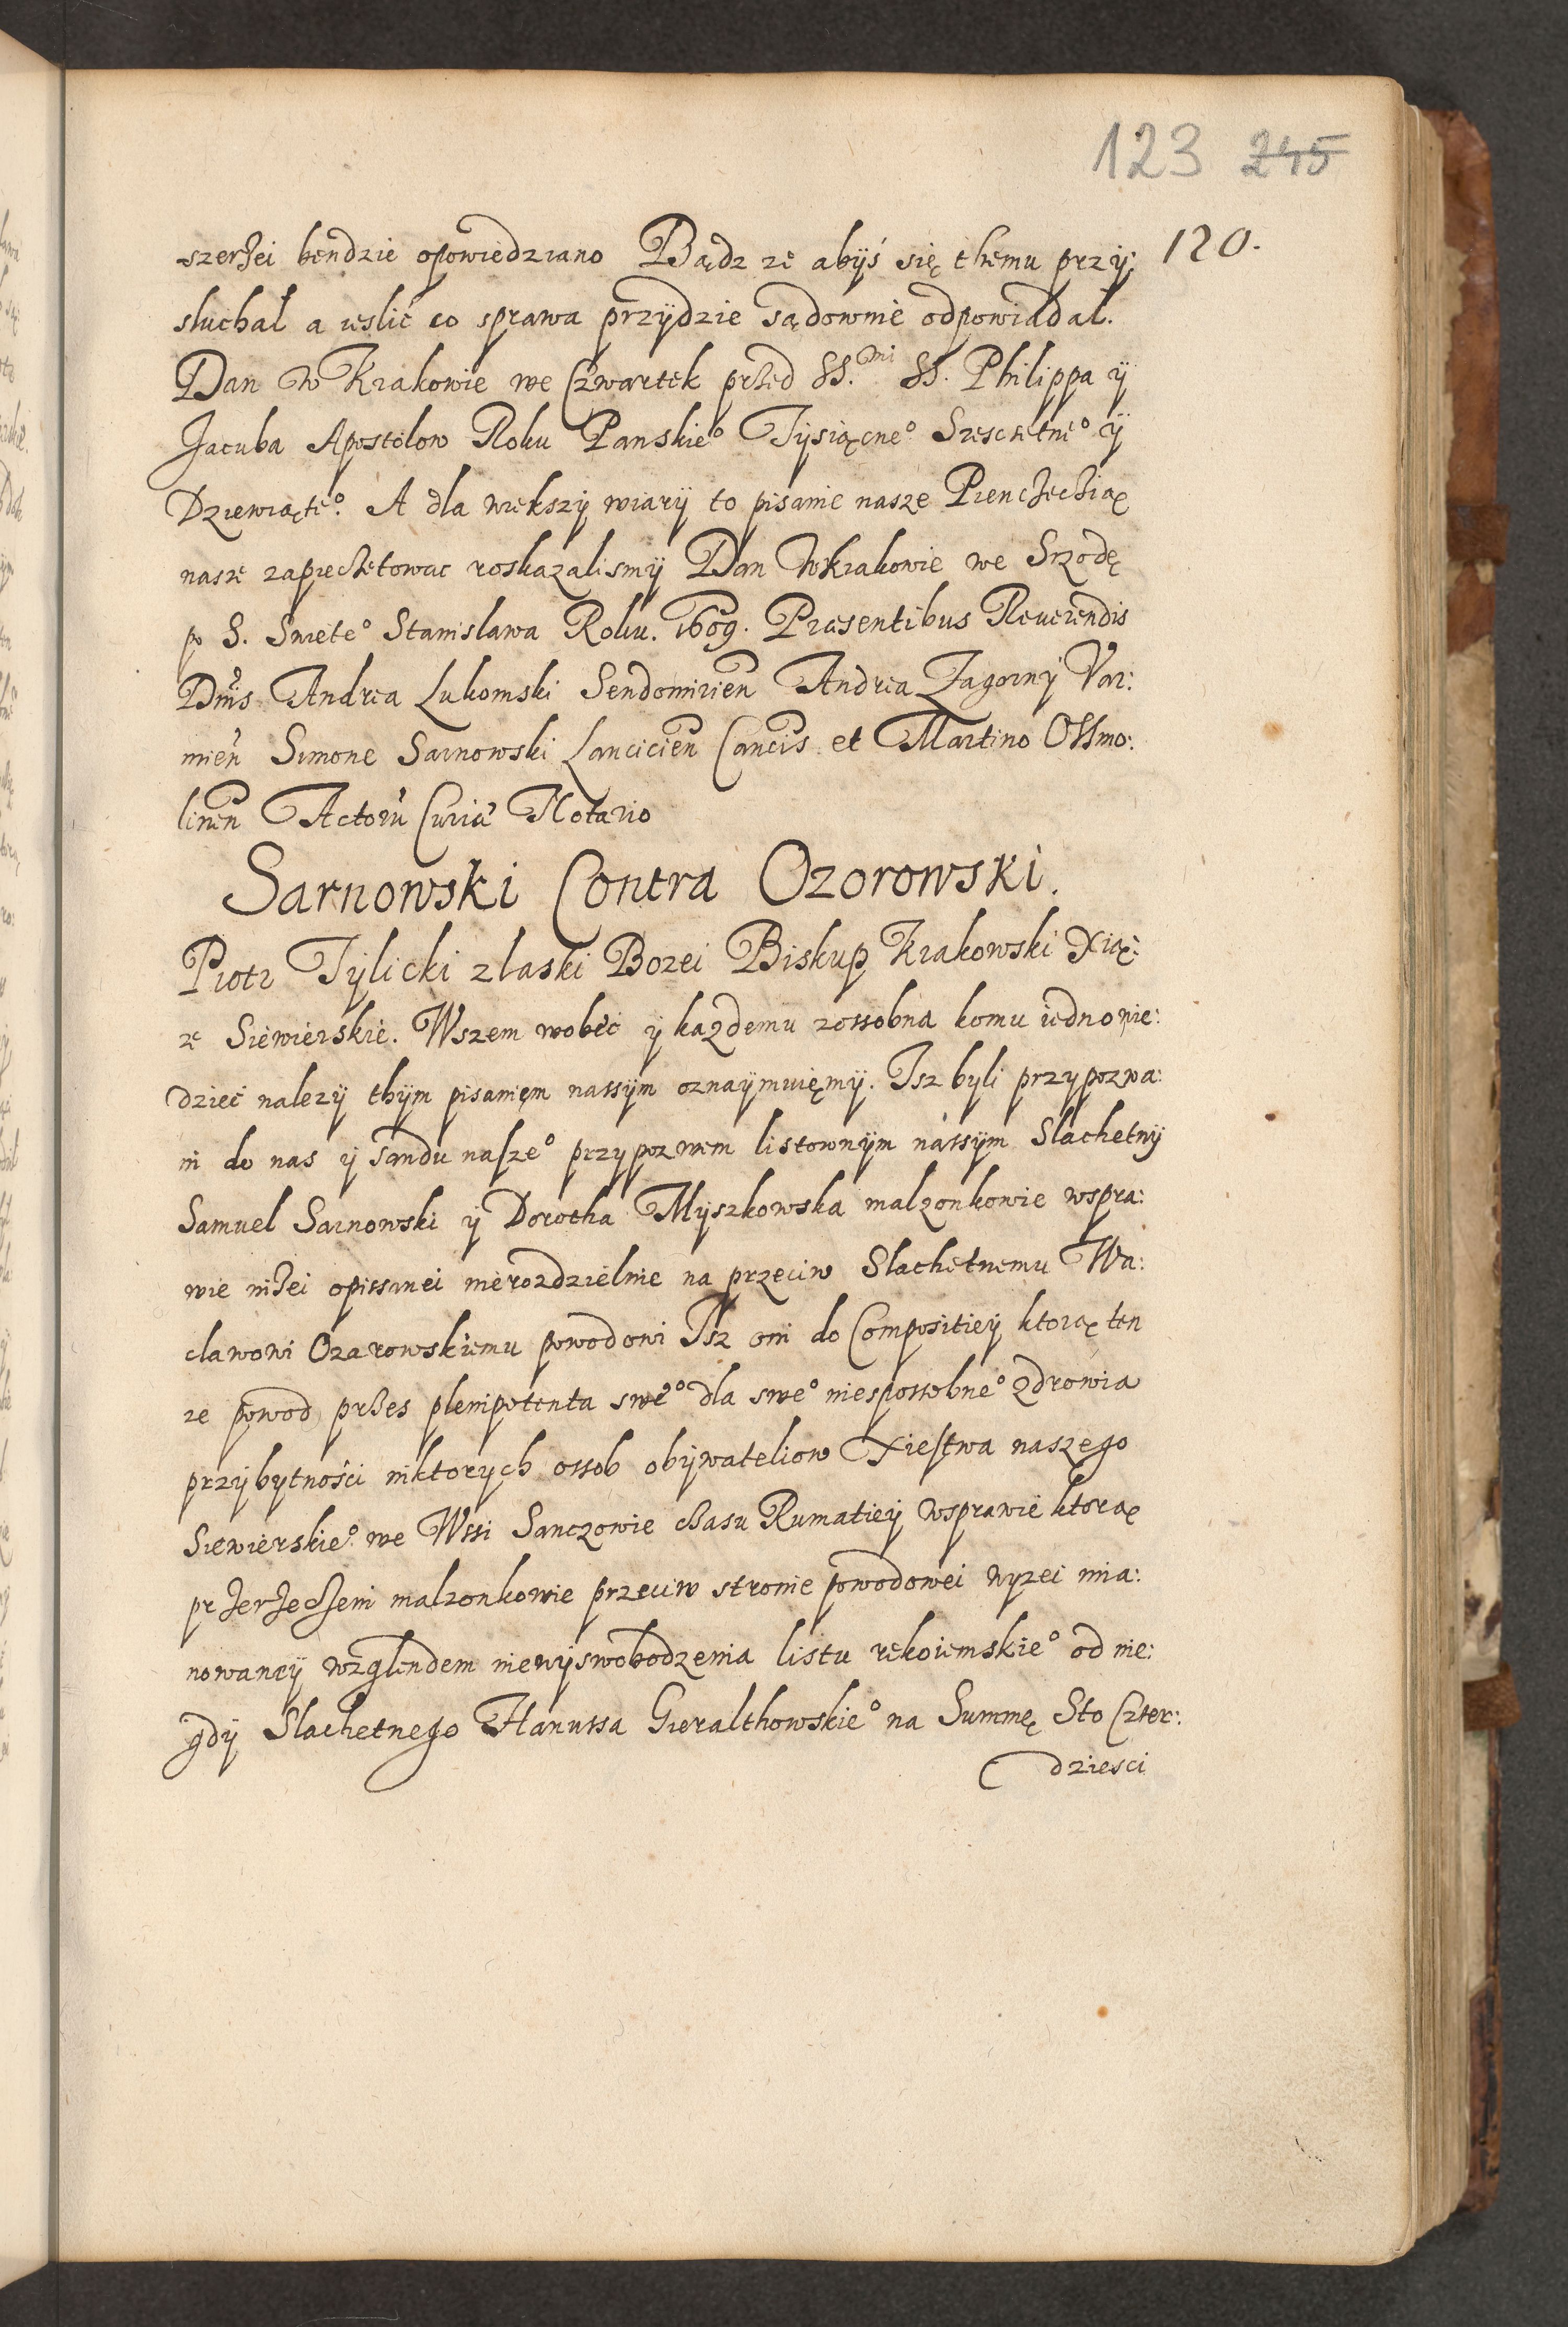 123 245
120.
szerszei bendzie opowiedziano Bądz ze abyś się themu przy:
słuchał a ieslić co sprawa przydzie sądownie odpowiadał.
Dan w Krakowie we Czwartek przed SS.mi SS. Philippa ÿ
Jacuba Apostolow Roku Panskieº Tÿsiącneº Szescsetneº ÿ
Dziewiąteº. A dla wiekszÿ wiarÿ to pisanie nasze Pienczecźią
nasze zapieczetowac roskazalismÿ Dan w Krakowie we Srzodę
po S. Swieteº Stanislawa Roku. 1609. Præsentibus Reuerendis
Dnis Andrea Lukomski Sendomirien Andrea Zagornÿ Var:
mien Simone Sarnowski Lancicien Cancis et Martino Ossmo:
linen Actorũ Curiæ Notario
Sarnowski Contra Ozorowski.
Piotr Tÿlicki z laski Bozei Biskup Krakowski Xią:
ze Siewierskie. Wszem wobec ÿ kazdemu zossobna komu iedno wie:
dzieć nalezÿ thÿm pisaniem nassÿm oznaÿmuięmÿ. Isz byli przypozwa:
ni do nas ÿ sandu naszeº przypozwem listownÿm nassÿm Slachetnÿ
Samuel Sarnowski ÿ Dorotha Mÿszkowska malzonkowie wspra:
wie niżei opissanei nierozdzielnie na przeciw Slachetnemu Wa:
clawowi Ozarowskiemu powodowi Isz oni do Compositieÿ ktorą ten
ze powod przes plenipotenta sweº dla sweº niespossobneº zdrowia
przÿbytności niktorych ossob obÿwateliow Xiestwa naszego
Siewierskieº we Wssi Sanczowie czasu Rumatieÿ wsprawie ktorą
przerzeczeni malzonkowie przeciw stronie powodowei wyzei mia:
nowaneÿ wzglendem niewÿswobodzenia listu rekoiemskieº od nie:
gdÿ Slachetnego Hanussa Gieralthowskieº na Summę Sto Czter:
dziesci